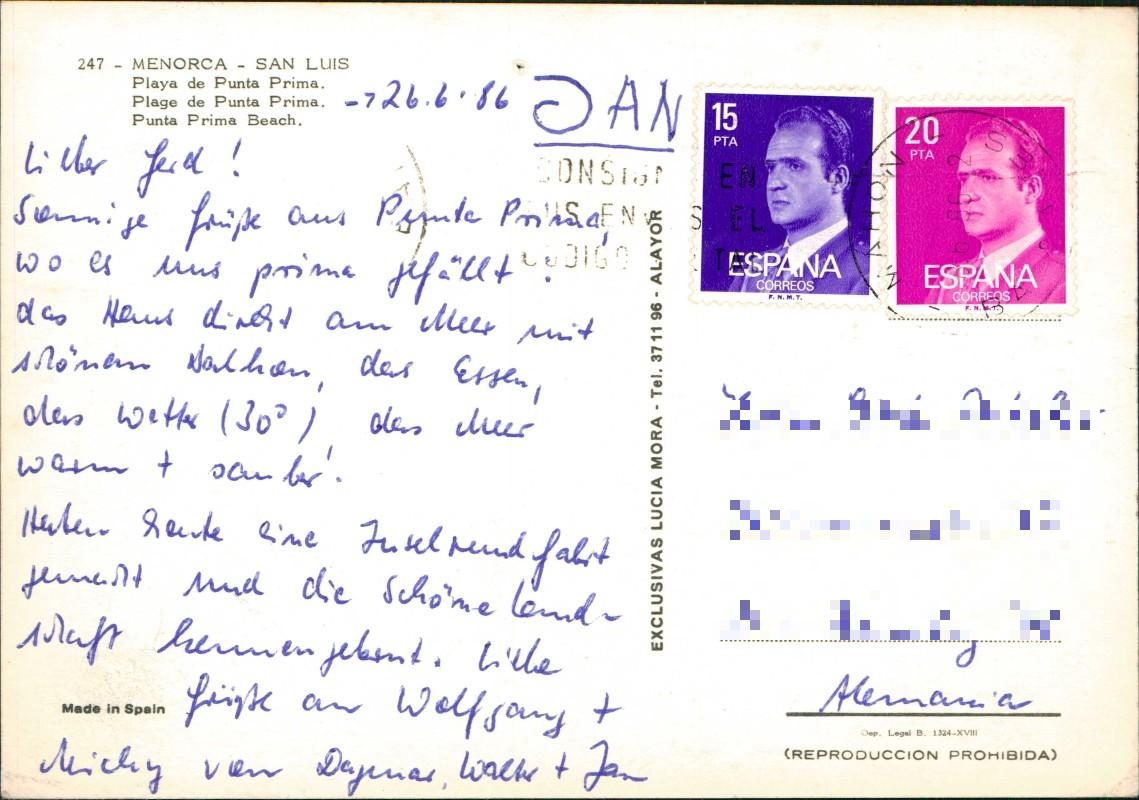 247 - MENORCA - SAN LUIS
Playa de Punta Prima.
Plage de Punta Prima.
Punta Prima Beach.
26.6.86
JAN
Lieber Gerd!
Sonnige Grüße aus Punta Prima,
wo es uns prima gefällt:
das Haus direkt am Meer mit
schönem Balkon, das Essen,
das Wetter (30°), das Meer
warm + sauber!
Haben heute eine Inselrundfahrt
gemacht und die Schöne Land-
schaft kennengelernt. Liebe
Grüße an Wolfgang +
Micky von Dagmar, Walter + Jan
Made in Spain
EXCLUSIVAS LUCIA MORA - Tel. 37 11 96 - ALAYOR
15
PTA
ESPAÑA
CORREOS
F.N.M.T.
20
PTA
ESPAÑA
CORREOS
F.N.M.T.
EN
US EN
S EL
CODIGO
MAHON
Alemania
Dep. Legal B. 1324-XVIII
(REPRODUCCION PROHIBIDA)